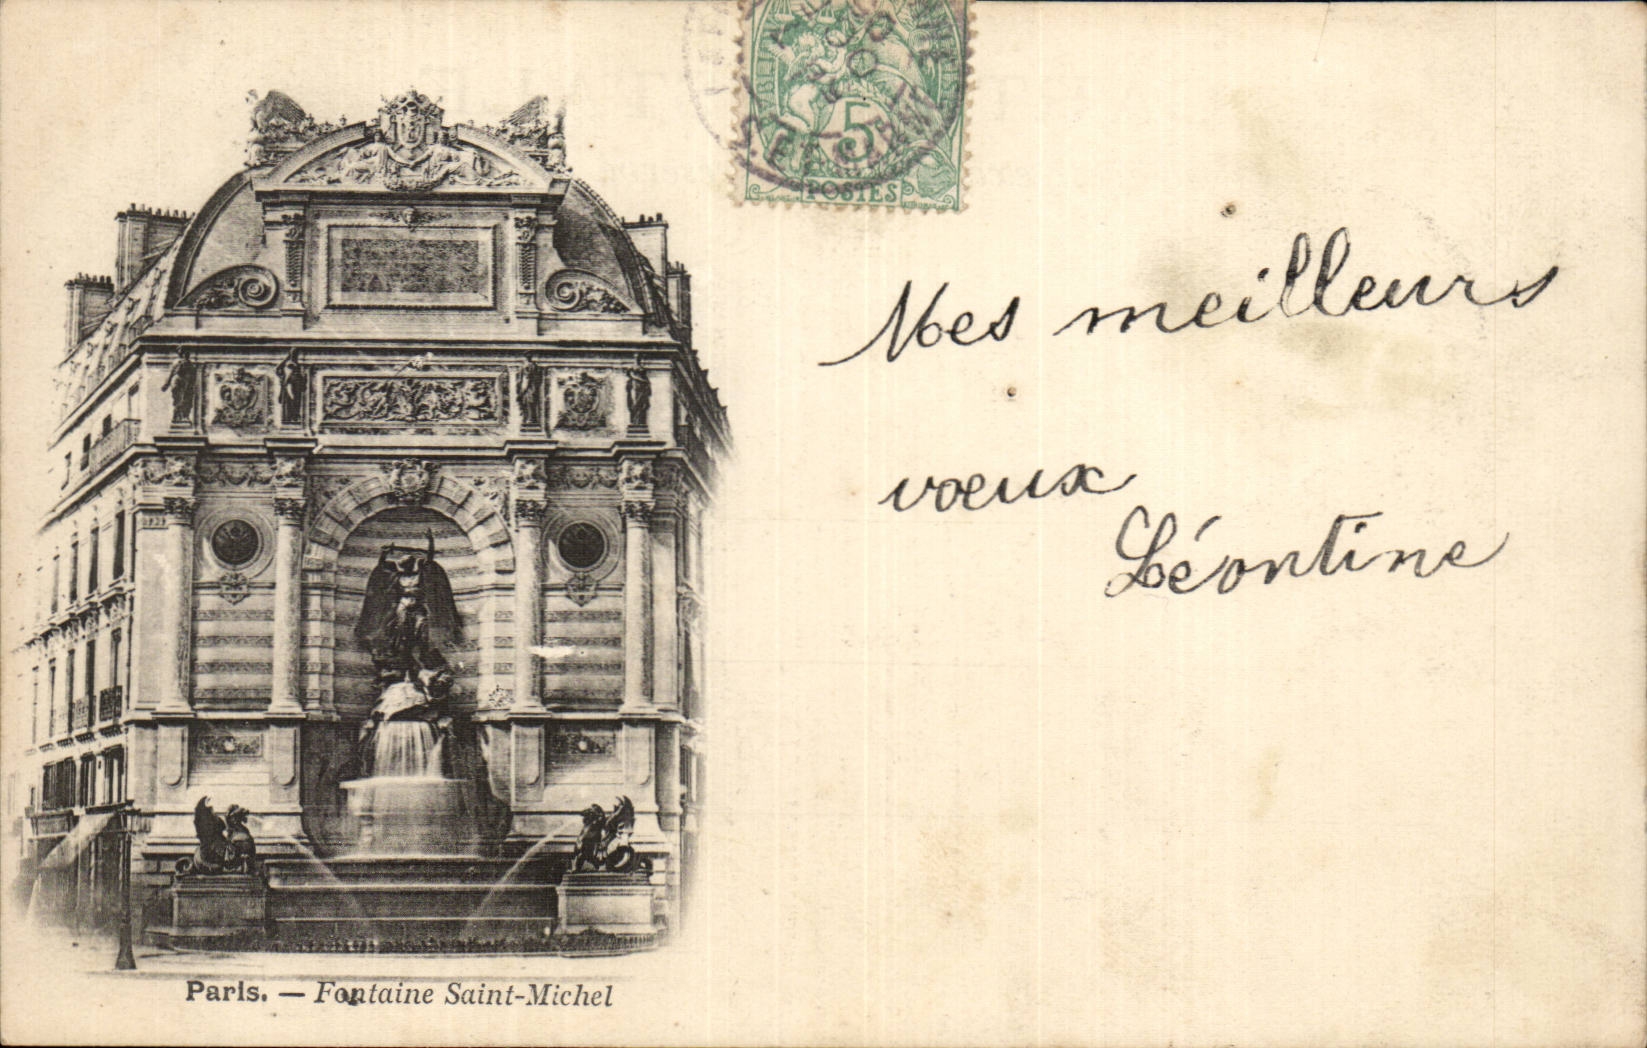 5
POSTES
Mes meilleurs
vœux
Léontine
Paris. — Fontaine Saint-Michel